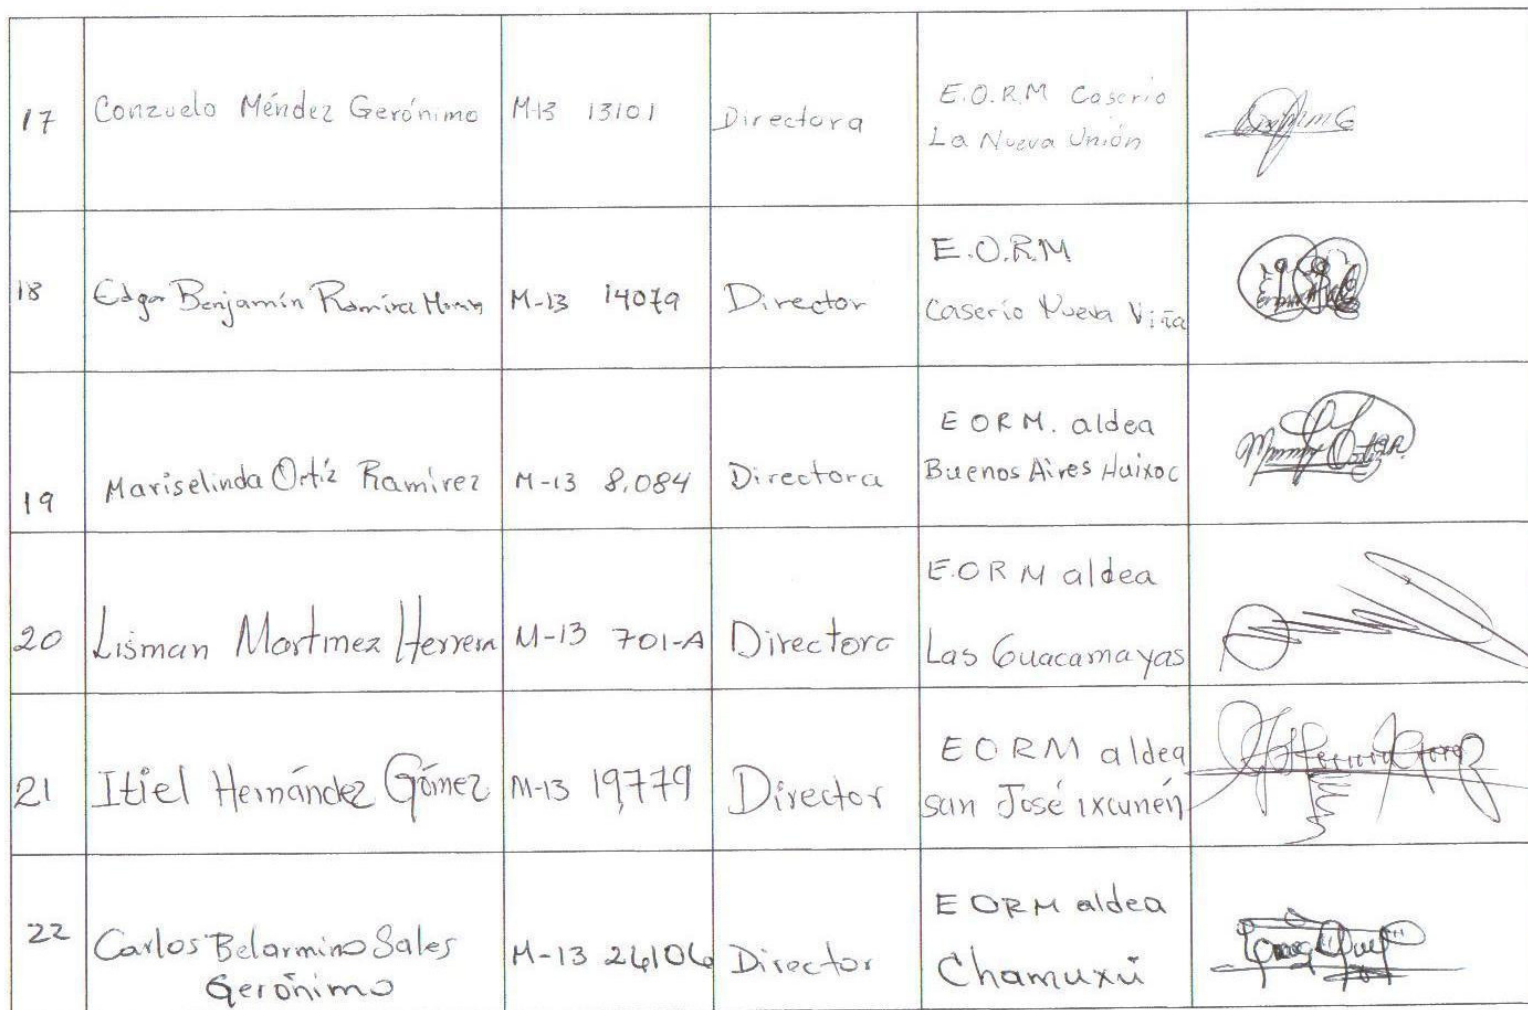 17 Conzuelo Méndez Gerónimo M-13 13101 Directora E.O.R.M Caserio
La Nueva Unión
18 Edgar Benjamín Ramírez M-13 14079 Director E.O.R.M
Caserio Nueva Viña
19 Mariselinda Ortíz Ramírez M-13 8,084 Directora E O R M. aldea
Buenos Aires Huixoc
20 Lisman Martinez Herrera M-13 701-A Directora E.O R M aldea
Las Guacamayas
21 Itiel Hernández Gómez M-13 19,779 Director E O R M aldea
san José ixcunén
22 Carlos Belarmino Sales M-13 Director E O R M aldea
Gerónimo Chamuxú